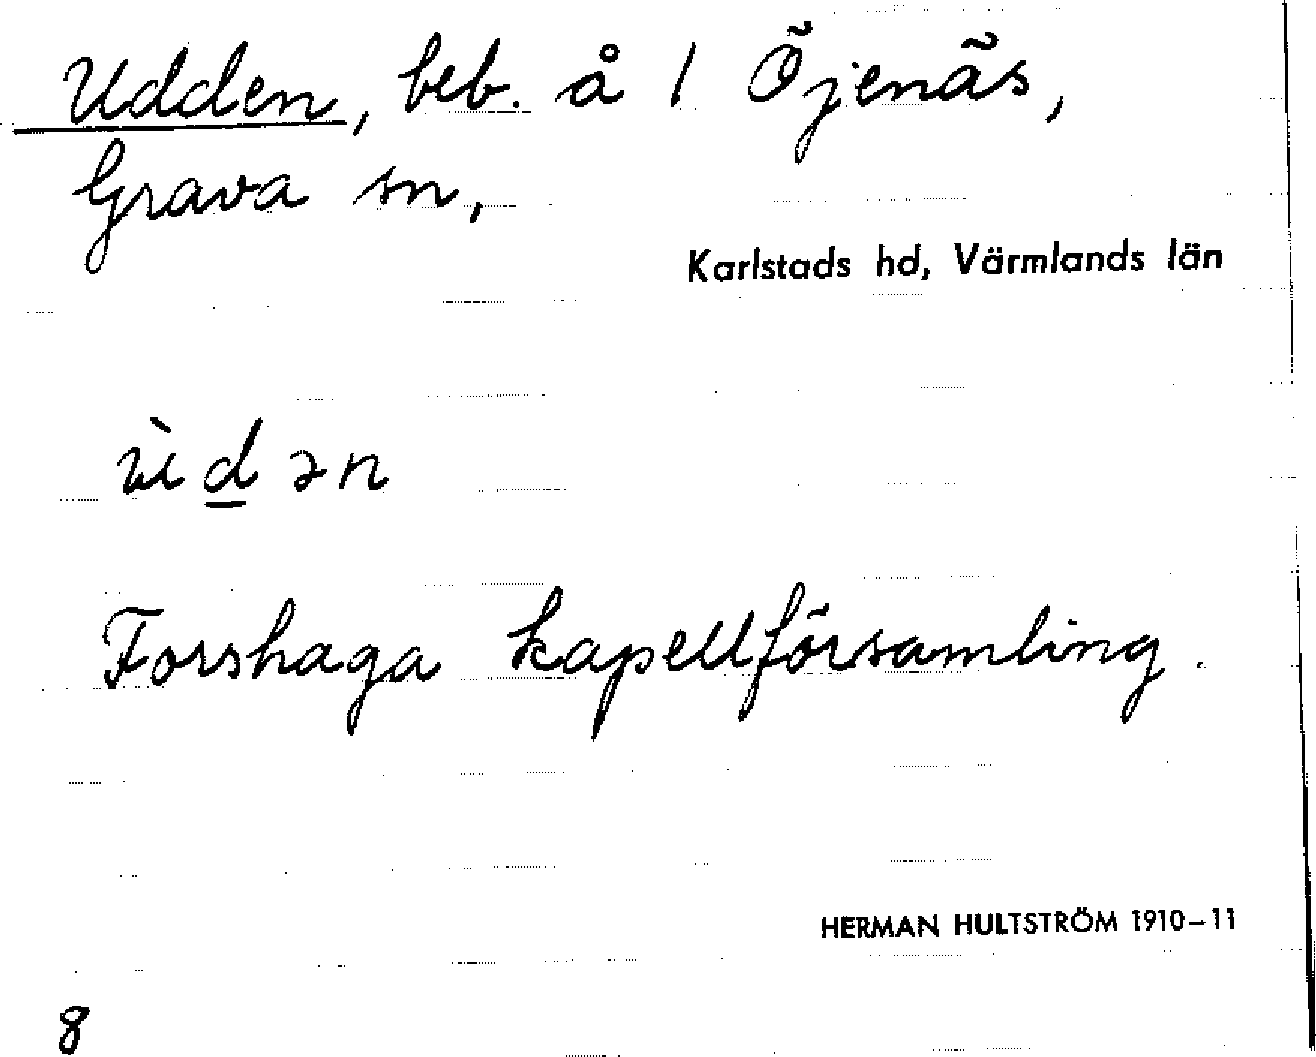 Udden, beb. å 1 Öjenäs,
Grava sn,
Karlstads hd, Värmlands län
ùd̲ən
Forshaga kapellförsamling.
HERMAN HULTSTRÖM 1910–11
8